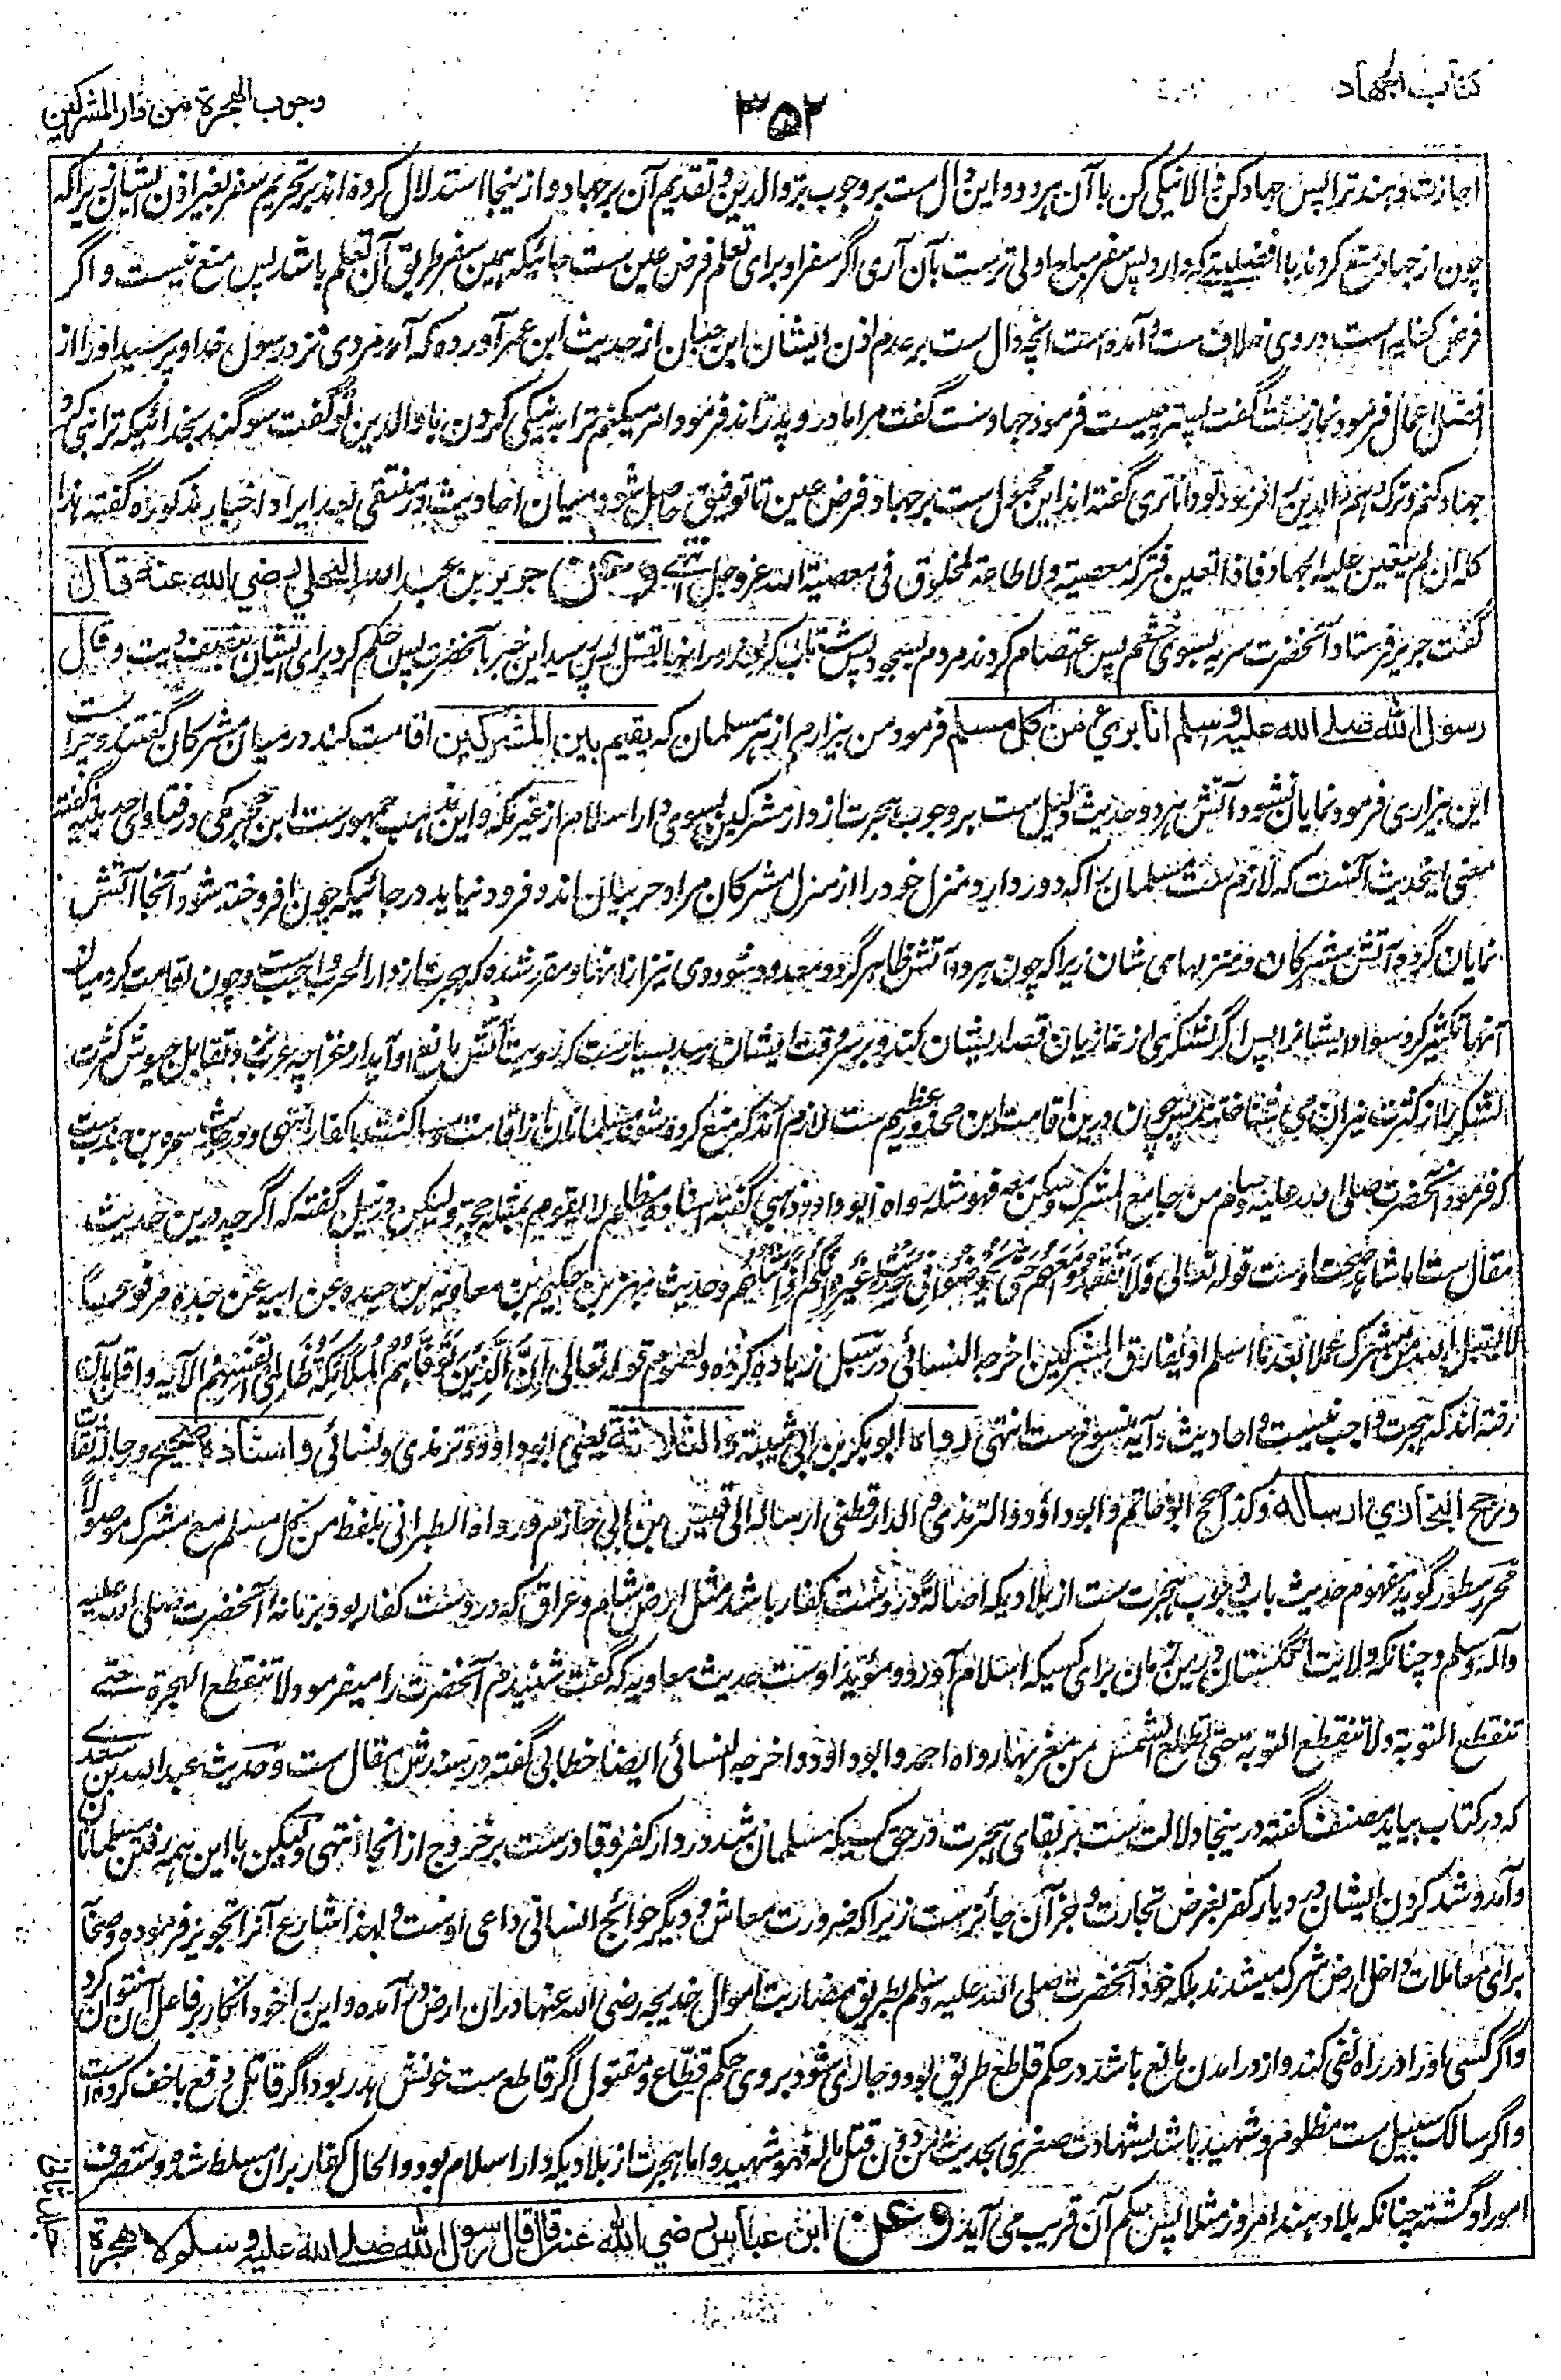 کتاب الجهاد
۳۵۲
وجوب الهجرة من دار المشرکین
اجازت دهند ترا پس جهاد کن والا نیکی کن با آن هر دو و این دال ست بر وجوب بر والدین و تقدیم آن بر جهاد و ازینجا استدلال کرده اند بر تحریم سفر بغیر اذن ایشان زیراکه
چون از جهاد منع کردند با افضلیتیکه دارد پس سفر مباح اولی ترست بآن آری اگر سفر او برای تعلم فرض عین ست جائیکه همین سفر طریق آن تعلم باشد پس منع نیست و اگر
فرض کفایه است در وی خلاف ست و آمده است آنچه دال ست بر عدم اذن ایشان ابن حبان از حدیث ابن عمر آورده که آمد مردی نزد رسول خدا و پرسید او را از
افضل اعمال فرمود نماز ست گفت پستر چیست فرمود جهاد ست گفت مرا مادر و پدر اند فرمود امر میکنم ترا به نیکی کردن با والدین تو گفت سوگند بخدائیکه ترا نبی کرد
جهاد کنم و ترک دهم والدین را فرمود تو داناتری گفته اند این محمول ست بر جهاد فرض عین تا توفیق حاصل شود میان احادیث و در منتقی بعد ایراد اخبار مذکوره گفته هذا
کله ان لم یتعین علیه الجهاد فاذا تعین فترکه معصیة ولا طاعة لمخلوق فی معصیة الله عز وجل انتهی وعن جریر بن عبد الله البجلی رضی الله عنه قال
گفت جریر فرستاد آنحضرت سریه بسوی خثعم پس اعتصام کردند مردم بسجود پس شتاب کرده شد در ایشان قتل پس رسید این خبر بآنحضرت پس حکم کرد برای ایشان بنصف دیت و قال
رسول الله صلى الله علیه وسلم انا بریء من کل مسلم فرمود من بیزارم از هر مسلمان که یقیم بین المشرکین اقامت کند در میان مشرکان گفتند و چراست
این بیزاری فرمود نمایان نشود آتش هر دو و حدیث دلیل ست بر وجوب هجرت از دار مشرکین بسوی دار اسلام از غیر مکه و این مذهب جمهور ست ابن حجر مکی در فتاوای حدیثیه گفته
معنی اینحدیث آنست که لازم ست مسلمان را که دور دارد منزل خود را از منزل مشرکان مراد حربیان اند و فرود نیاید در جائیکه چون افروخته شود آنجا آتش
نمایان گردد آتش مشرکان و منزلهای شان زیراکه چون هر دو آتش ظاهر گردد معدود شود وی نیز از آنها و مقرر شده که هجرت از دار الحرب واجب ست و چون اقامت کرد میان
آنها تکثیر کرد سواد ایشانرا پس اگر لشکری از غازیان قصد ایشان کند و بر سر وقت ایشان رسد بسیار ست که رویت آتش مانع او آید از غزا چه عرب در تقابل جیوش کثرت
لشکر را از کثرت نیران می شناختند پس چون درین اقامت این محذور عظیم ست لازم آمد که منع کرده شوند مسلمانان از اقامت و مساکنت با کفار انتهی و در حدیث سمره بن جندب ست
که فرمود آنحضرت صلی الله علیه وسلم من جامع المشرک وسکن معه فهو مثله رواه ابو داود ذهبی گفته اسناده مظلم لا یقوم بمثله حجة ولیکن در نیل گفته که اگر چه درین حدیث
مقال ست اما شاهد صحت اوست قوله تعالی فَلَا تَقْعُدُوا مَعَهُمْ حَتَّى يَخُوضُوا فِي حَدِيثٍ غَيْرِهِ إِنَّكُمْ إِذًا مِثْلُهُمْ و حدیث بهز بن حکیم بن معاویه بن حیده عن ابیه عن جده مرفوعا
لا یقبل الله من مشرک عملا بعد ما اسلم او یفارق المشرکین اخرجه النسائی در سبل زیاده کرده و لعموم قوله تعالی إِنَّ الَّذِينَ تَوَفَّاهُمُ الْمَلَائِكَةُ ظَالِمِي أَنْفُسِهِمْ الآیه و اقل بآن
رفته اند که هجرت واجب نیست و احادیث و آیه منسوخ ست انتهی رواه ابو بکر بن ابی شیبة والثلاثة یعنی ابو داود و ترمذی و نسائی واسناده صحیح و رجاله ثقات
ورجح البخاری ارساله وکذا صحح ابو حاتم وابو داؤد والترمذی والدارقطنی ارساله الی قیس بن ابی حازم ورواه الطبرانی بلفظ من کل مسلم مع مشرک موصولاً
محرر سطور گوید مفهوم حدیث باب وجوب هجرت ست از بلادیکه اصالةً در دست کفار باشد مثل ارض شام و عراق که در دست کفار بود بزمانه آنحضرت صلی الله علیه
وآله وسلم و چنانکه ولایت انگلستان درین زمان برای کسیکه اسلام آورد و مؤید اوست حدیث معاویه که گفت شنیدم آنحضرت را میفرمود لا تنقطع الهجرة حتی
تنقطع التوبة ولا تنقطع التوبة حتی تطلع الشمس من مغربها رواه احمد وابو داؤد واخرجه النسائی ایضا خطابی گفته در سندش مقال ست و حدیث عبد الله بن سعدی
که در کتاب بیاید مصنف گفته درینجا دلالت ست بر بقای هجرت در حق کسیکه مسلمان شد در دار کفر و قادر ست بر خروج از آنجا انتهی ولیکن با این همه رفتن مسلمانان
و آمد و شد کردن ایشان در دیار کفر بغرض تجارت و جز آن جائز ست زیراکه ضرورت معاش و دیگر حوائج انسانی داعی اوست و لهذا شارع آنرا تجویز فرموده و صحابه
برای معاملات داخل ارض شرک میشدند بلکه خود آنحضرت صلی الله علیه وسلم بطریق مضاربت اموال خدیجه رضی الله عنها در آن ارض در آمده و این را خود انکار بر فاعل آن نتوان کرد
و اگر کسی او را در راه نفی کند و از در آمدن مانع باشد در حکم قاطع طریق بود و جاری شود بر وی حکم قطاع و مقتول اگر قاطع ست خونش هدر بود اگر قاتل دفع باخف کرده است
و اگر سالک سبیل ست مظلوم و شهید باشد بشهادت صغری بحدیث من قتل دون ماله فهو شهید و اما هجرت از بلادیکه دار اسلام بود و الحال کفار بران مسلط شده و متصرف
امور او گشته چنانکه بلاد هند امروز مثلا پس حکم آن قریب می آید وعن ابن عباس رضی الله عنه قال قال رسول الله صلى الله علیه وسلم لا هجرة
جلد ثانی